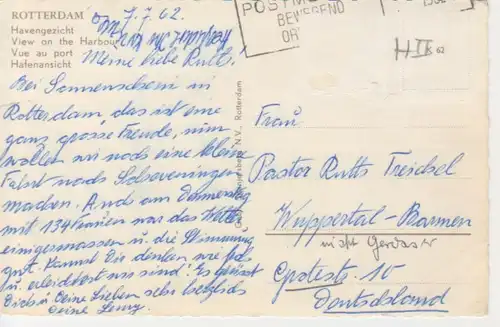 ROTTERDAM
Havengezicht
View on the Harbour
Vue au port
Hafenansicht
7.7.62.
Meine liebe Ruth!
Bei Sonnenschein in
Rotterdam, das ist eine
ganz grosse Freude, nun
wollen wir noch eine kleine
Fahrt nach Scheveningen
machen. Auch am Donnerstag
mit 134 Frauen war das Wetter
einigermassen u. die Stimmung
gut. Kannst Dir denken wie froh
u. erleichtert wir sind! Es grüsst
Dich u. Deine Lieben sehr herzlich
Deine
N.V., Rotterdam
BEWEREND
62
Frau
Pastor Ruth Treichel
Wuppertal-Barmen
nicht
10
Deutschland